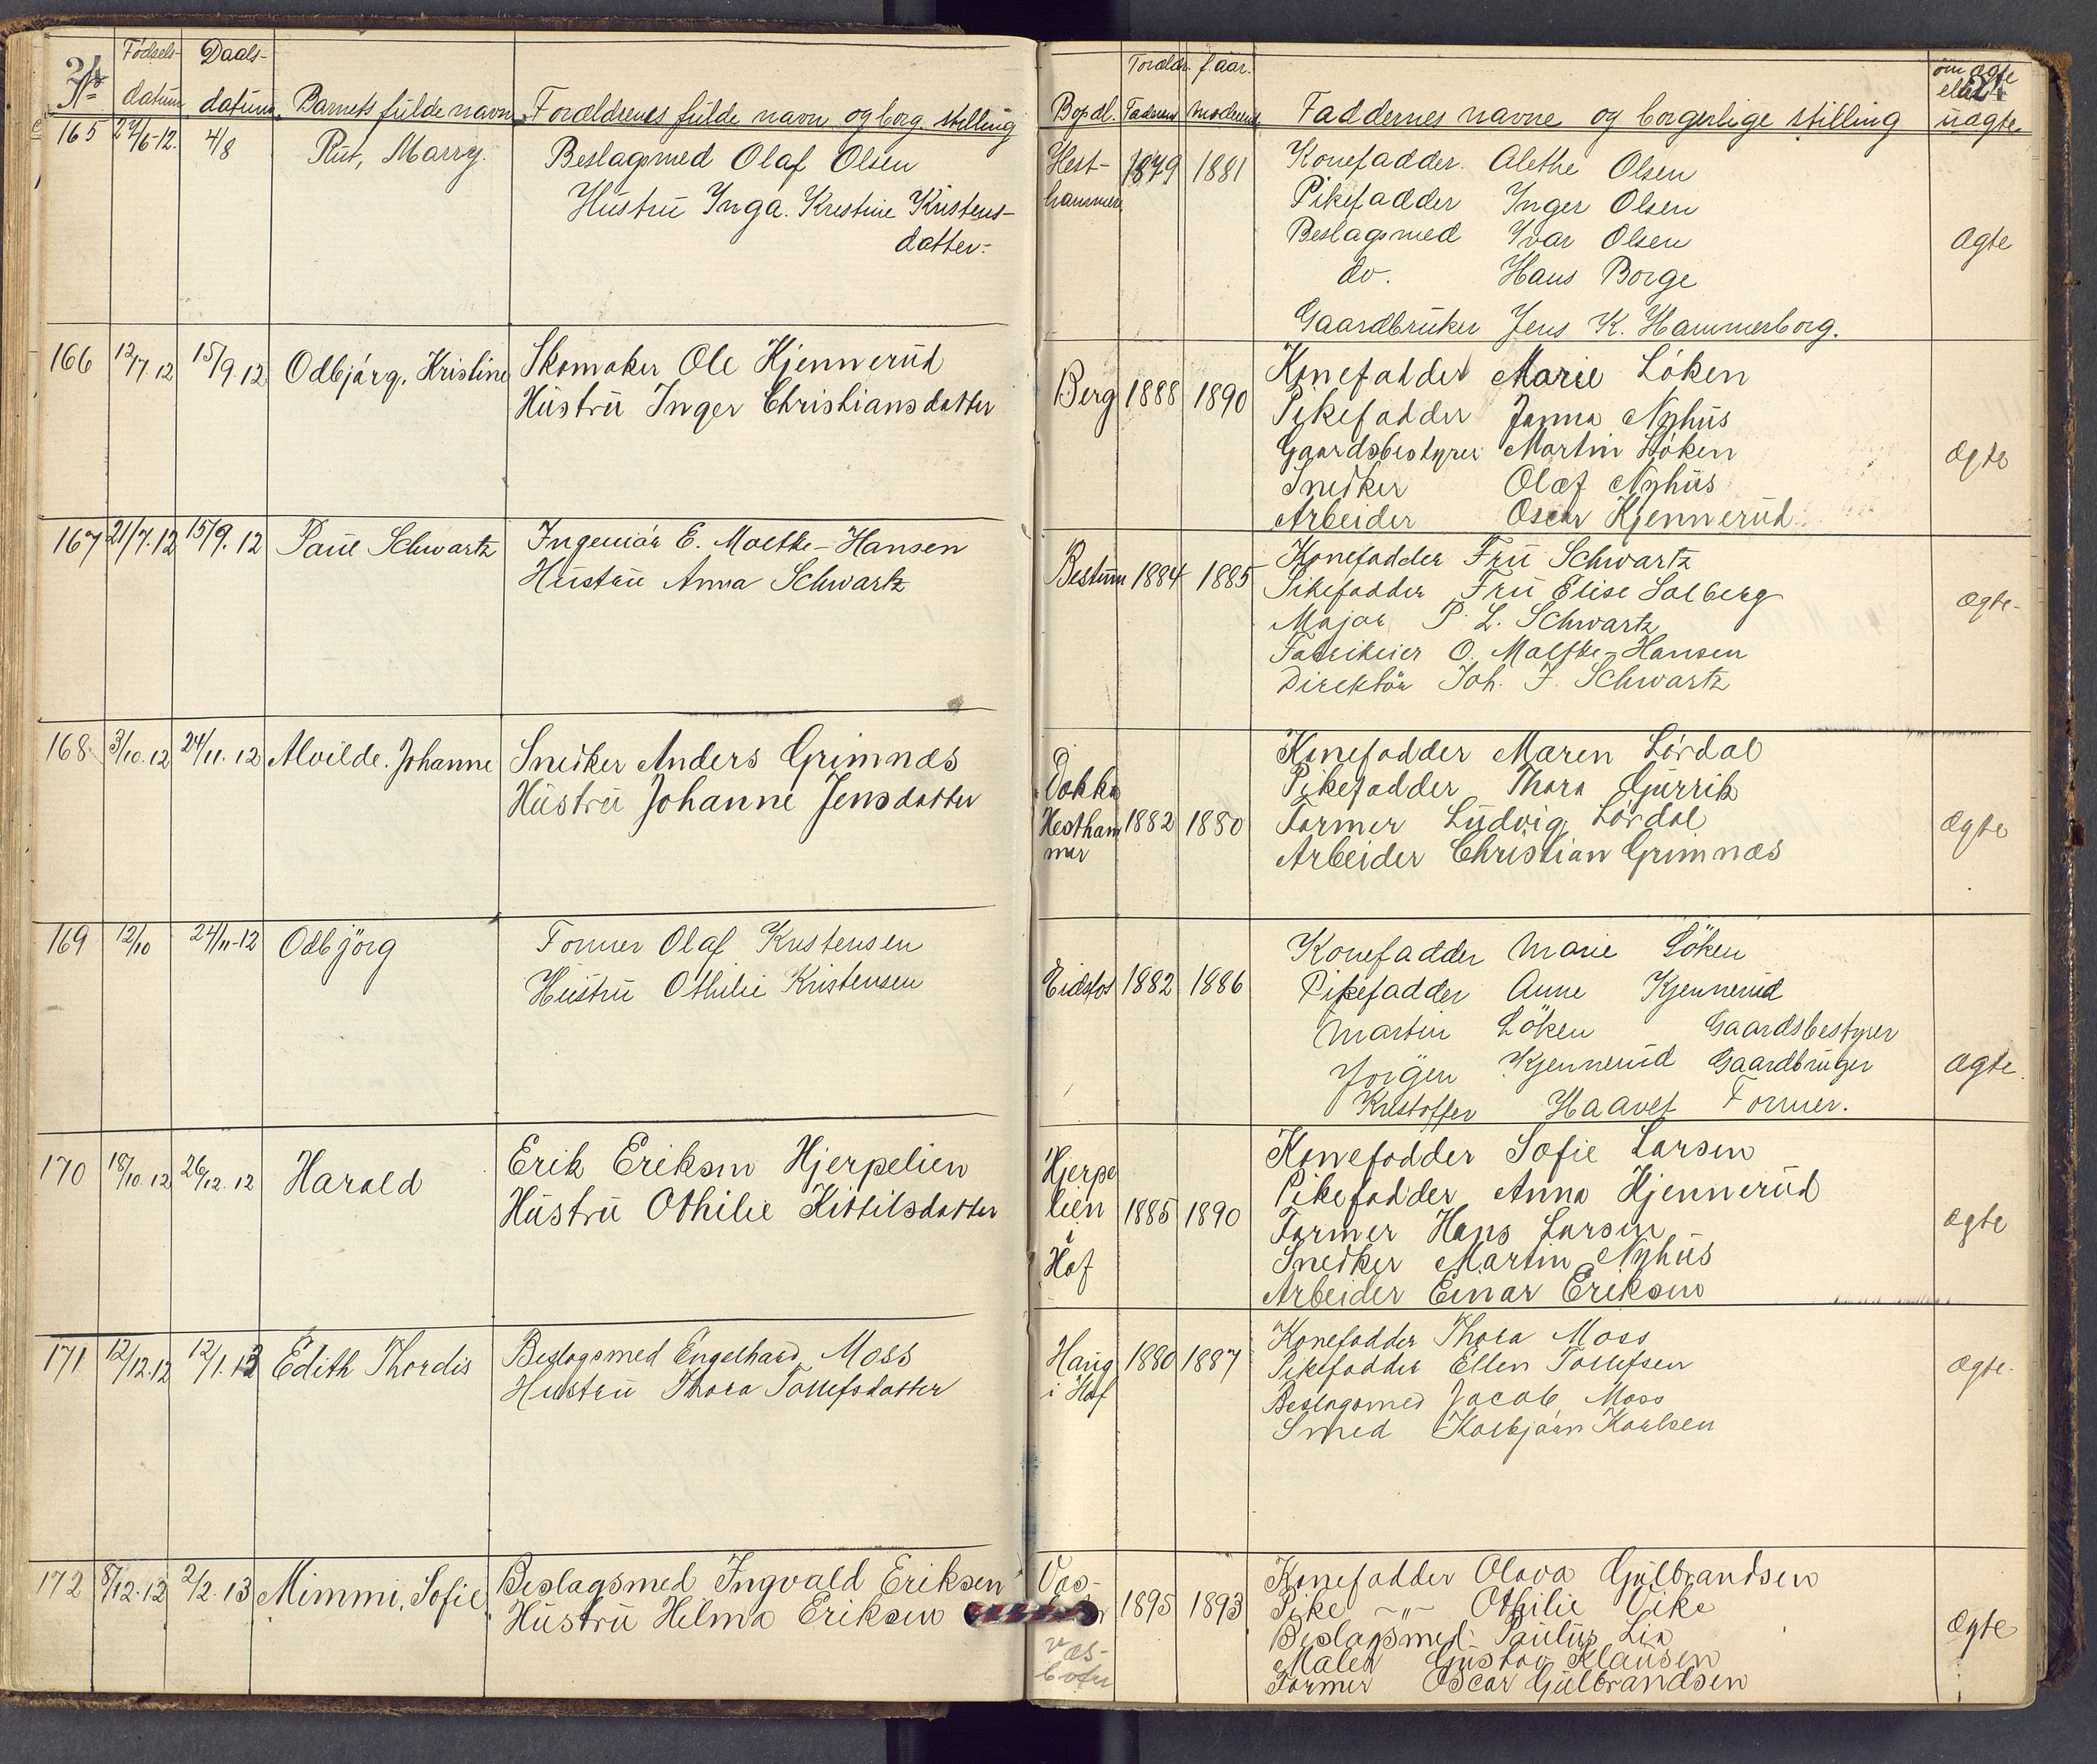 24
Nr
Fødsels-
datum
Daabs-
datum
Barnets fulde navn
Forældrenes fulde navn og borg. stilling
165 27/6-12. 4/8 Rut, Marry. Beslagsmed Olaf Olsen
Hustru Inga. Kristine Kristens-
datter.
166 12/7 12 15/9. 12 Odbjörg, Kristine Skomaker Ole Kjennerud
Hustru Inger Christiansdatter
167 21/7.12 15/9. 12 Paul Schwartz Ingeniör E. Moltke-Hansen
Hustru Anna Schwartz
168 3/10.12 24/11. 12 Alvilde. Johanne Snedker Anders Grimnæs
Hustru Johanne Jensdatter
169 12/10 24/11-12 Odbjörg Former Olaf Kristensen
Hustru Othilie Kristensen
170 18/10.12 26/12. 12 Harald Erik Eriksen Hjerpelien
Hustru Othilie Kittilsdatter
171 12/12.12 12/1.13 Edith Thordis Beslagsmed Engelhard Moss
Hustru Thora Tollefsdatter
172 8/12.12 2/2.13 Mimmi, Sofie Beslagsmed Ingvald Eriksen
Hustru Helma Eriksen
Bopæl. Forældr. f. aar.
Faderens Moderens
Faddernes navne og borgerlige stilling
om ægte
eller
uægte
Hest-
hammer 1879 1881 Konefadder. Alethe Olsen
Pikefadder Inger Olsen
Beslagsmed Ivar Olsen
do. Hans Borge
Gaardbruker Jens K. Hammerborg.
ægte
Berg 1888 1890 Konefadder Marie Löken
Pikefadder Janna Nyhus
Gaardsbestyrer Martin Löken
Snedker Olaf Nyhus
Arbeider Oscar Kjennerud
ægte
Bestum 1884 1885 Konefadder Fru Schwartz
Pikefadder Fru Elise Solberg
Major P. L. Schwartz
Fabrikeier O. Moltke-Hansen
Direktör Joh. F. Schwartz
ægte-
Dokka
Hestham
mer 1882 1880 Konefadder Maren Lördal
Pikefadder Thora
Former Ludvig Lördal
Arbeider Christian Grimnæs
ægte
Eidsfos 1882 1886 Konefadder Marie Löken
Pikefadder Anne Kjennerud
Martin Löken Gaardsbestyrer
Jörgen Kjennerud Gaardbruger
Kristoffer Haavet Former.
ægte.
Hjerpe
lien
i
Hof 1885 1890 Konefadder Sofie Larsen
Pikefadder Anna Kjennerud
Former Hans Larsen
Snedker Martin Nyhus
Arbeider Einar Eriksen
ægte
Haug
i Hof 1880 1887 Konefadder Thora Moss
Pikefadder Ellen Tollefsen
Beslagsmed Jacob Moss
Smed Kolbjörn Karlsen
ægte.
Vas-
1895 1893 Konefadder Olava Gulbrandsen
Pike -"- Othilie Vike
Beslagsmed Paulus Lia
Maler Gustav Klausen
Former Oscar Gulbrandsen
ægte